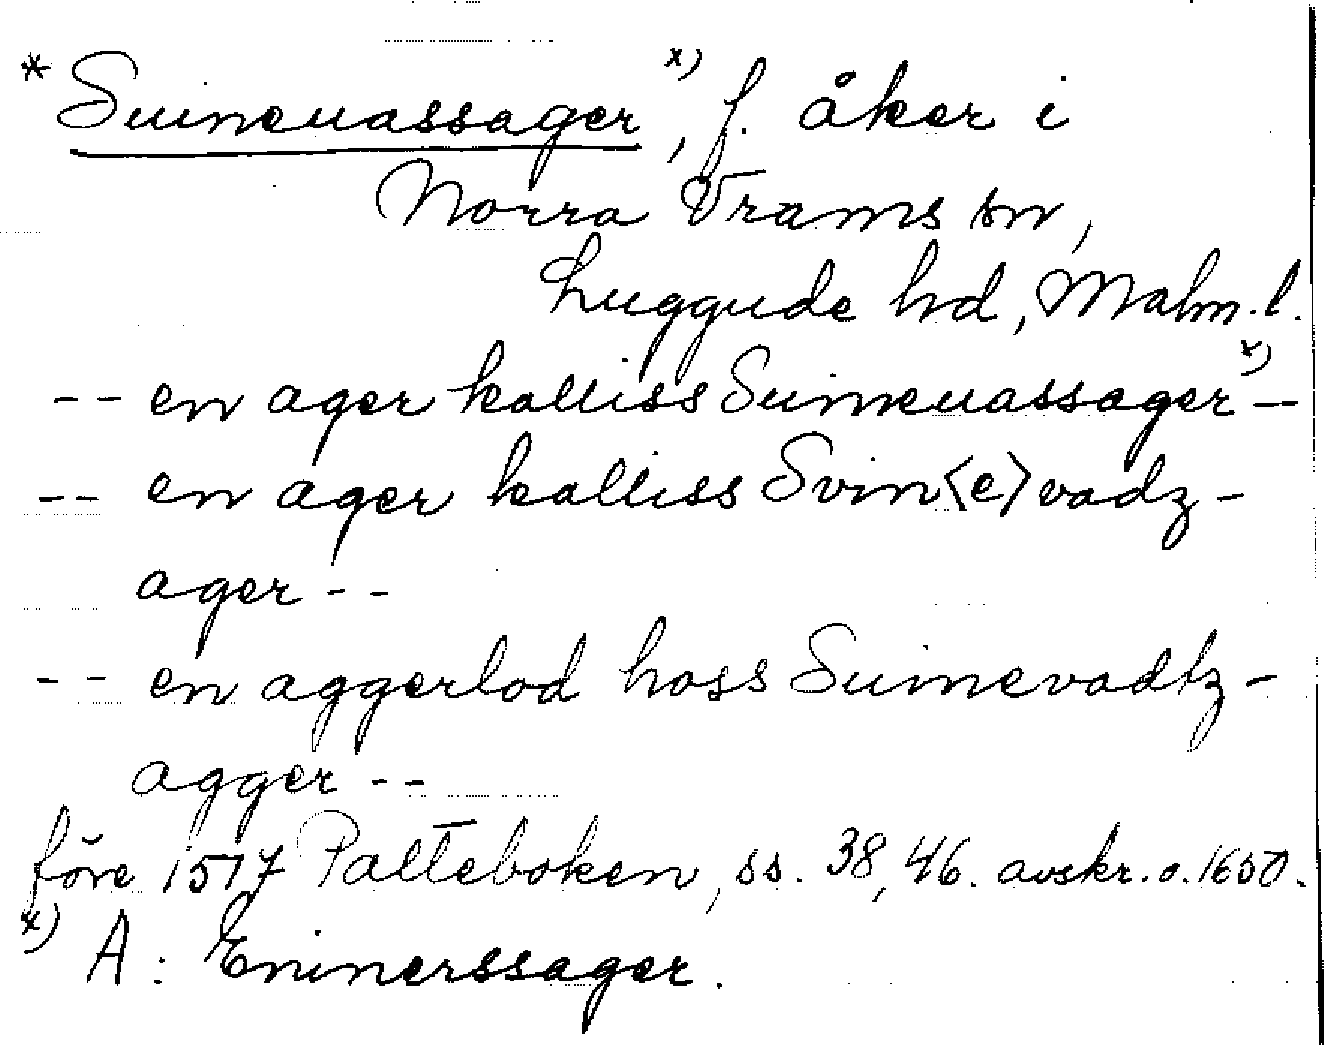 * Suineuassager x), f. åker i
Norra Vrams sn,
Luggude hd, Malm. l.
-- en ager kalliss Suineuassager x) --
-- en ager kalliss Svin<e>vadz-
ager --
-- en aggerlod hoss Suinevadtz-
agger --
före 1517 Palteboken, ss. 38, 46. avskr. o. 1650.
x) A: Eninerssager.